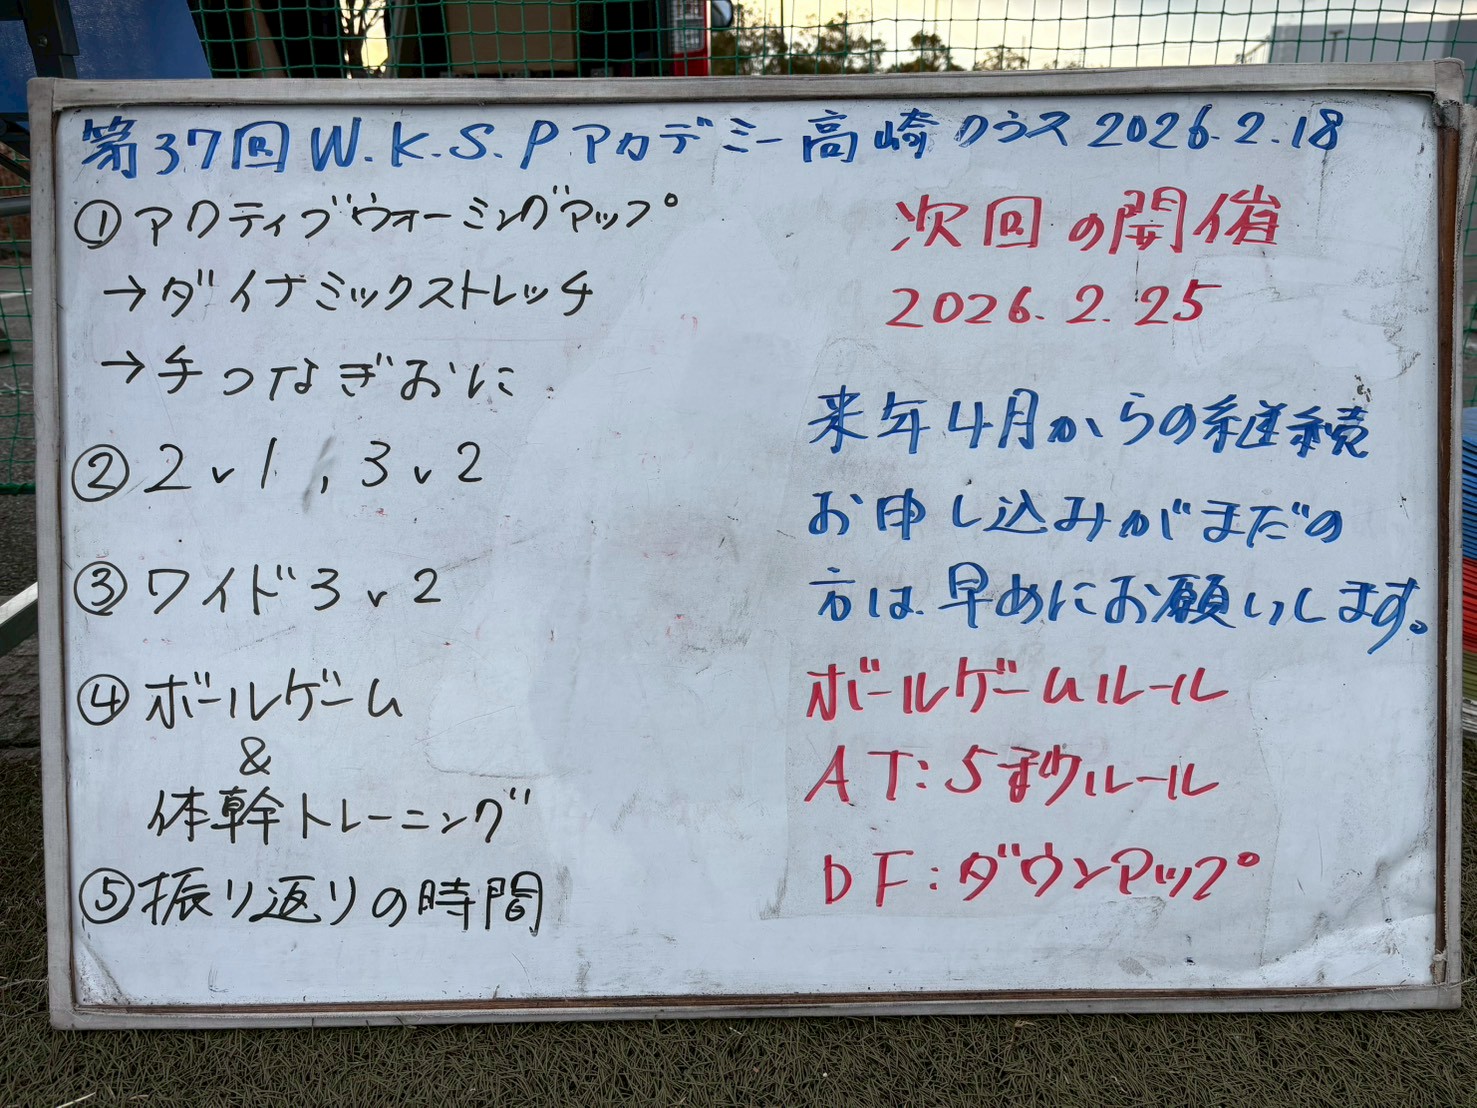 第37回W.K.S.Pアカデミー高崎クラス2026.2.18
①アクティブウォーミングアップ
→ダイナミックストレッチ
→手つなぎおに
②2v1,3v2
③ワイド3v2
④ボールゲーム
&
体幹トレーニング
⑤振り返りの時間
次回の開催
2026.2.25
来年4月からの継続
お申し込みがまだの
方は早めにお願いします。
ボールゲームルール
AT:5秒ルール
DF:ダウンアップ